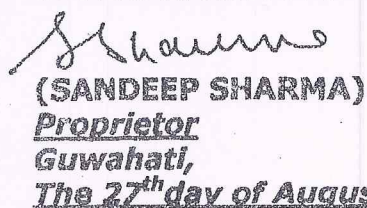 S Sharma
(SANDEEP SHARMA)
Proprietor
Guwahati,
The 27th day of Augus